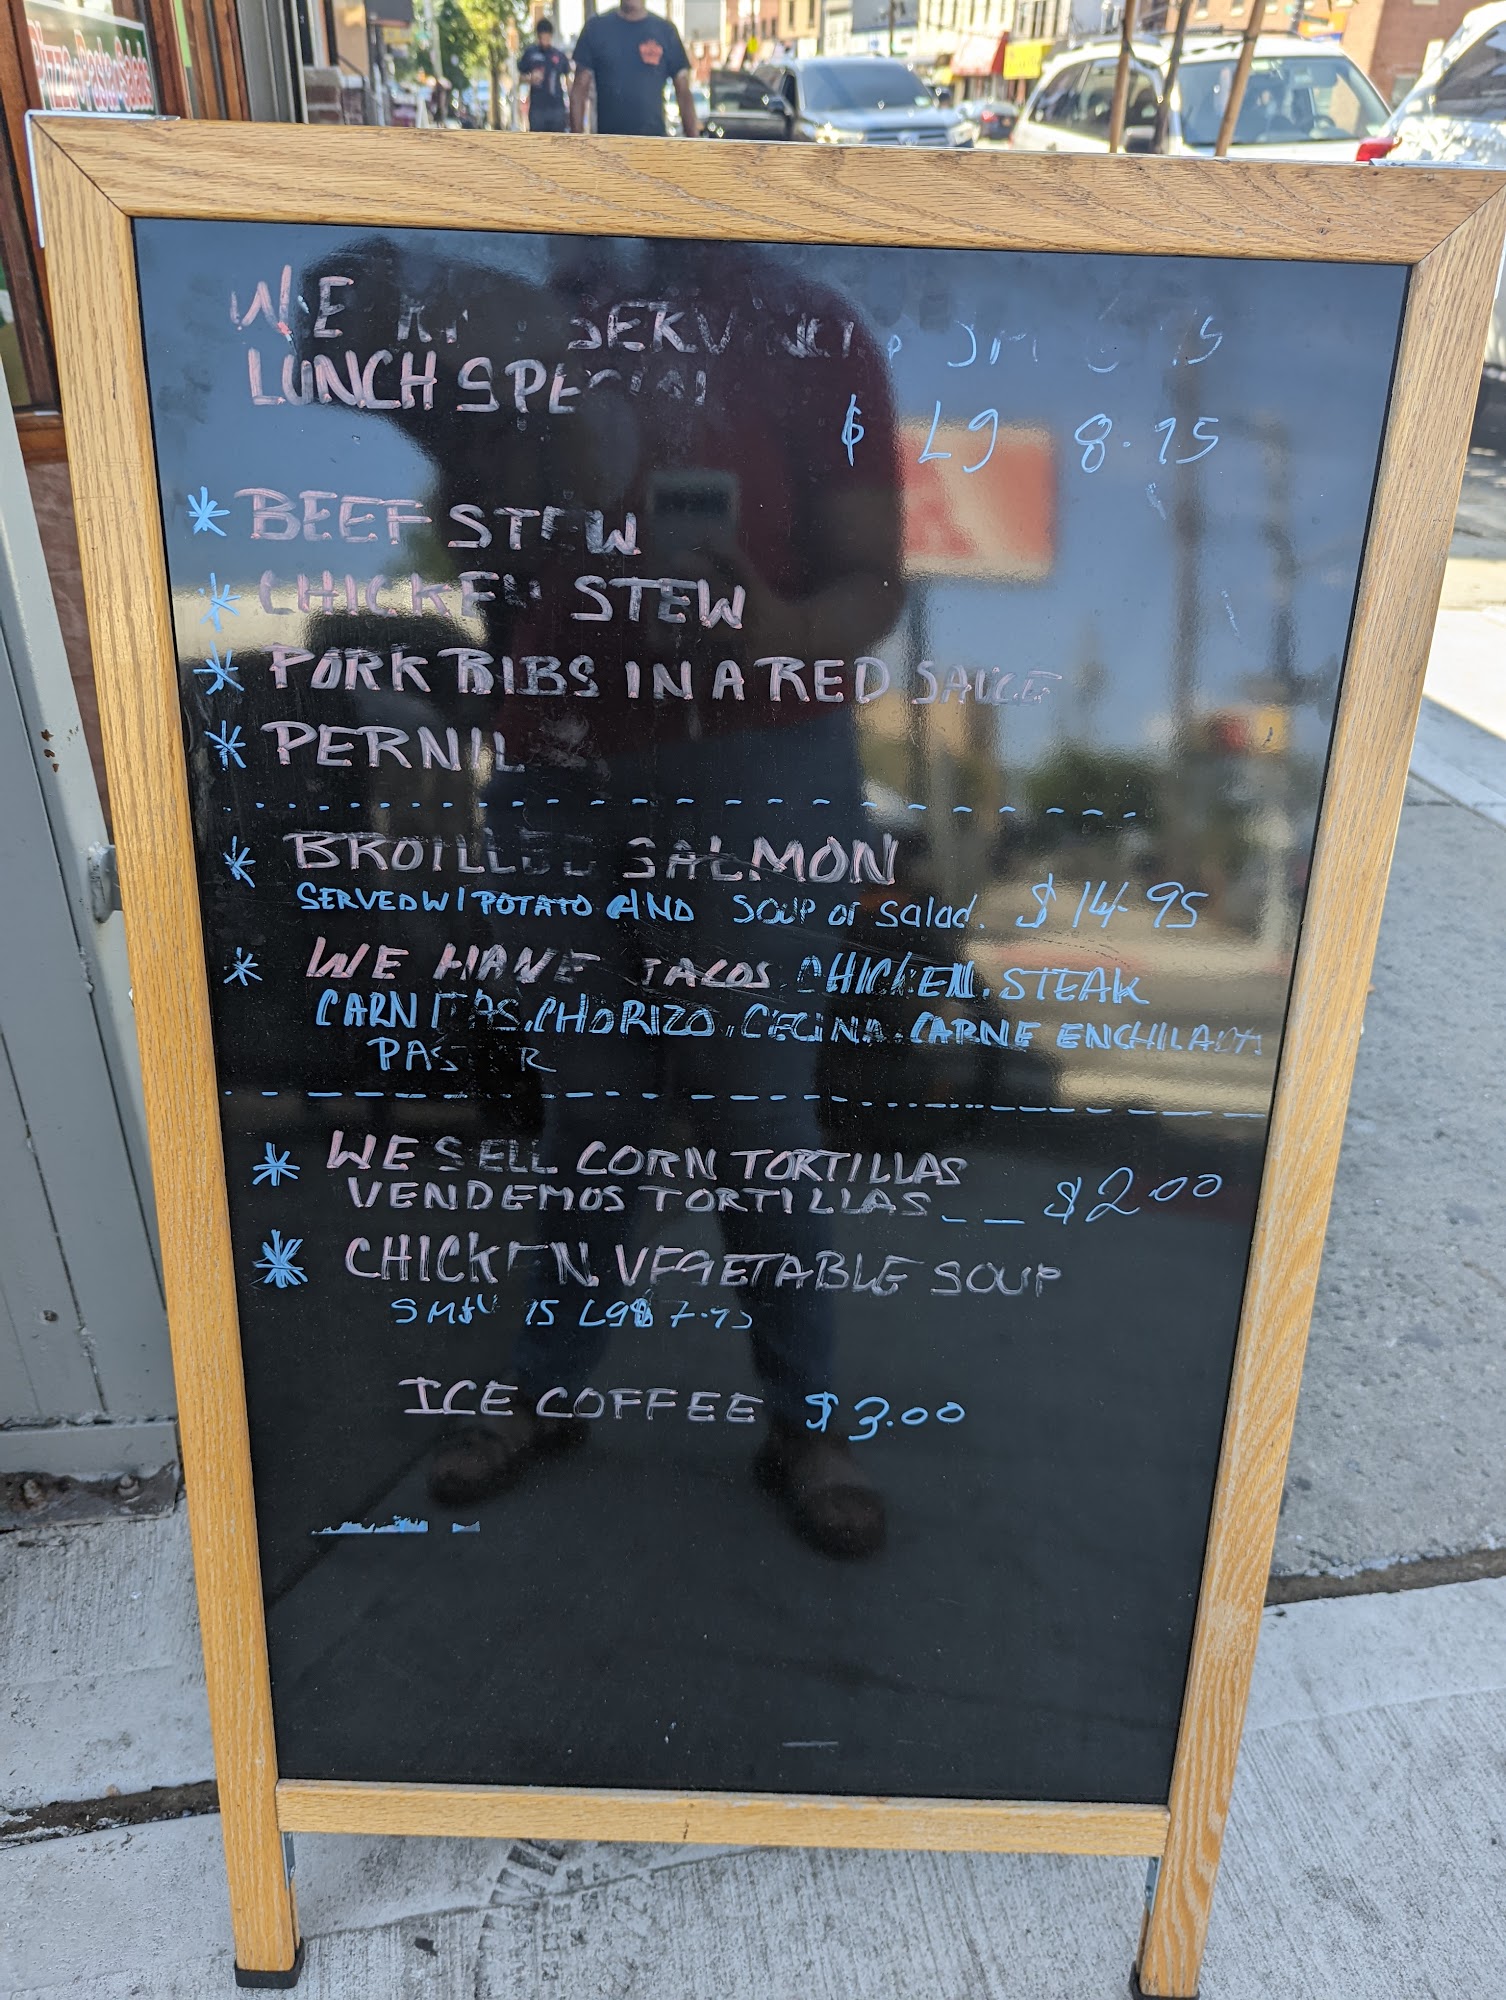 Pizza • Pasta • Salads
WE SERV
LUNCH SPECIAL
$ LG 8.75
* BEEF STEW
* CHICKEN STEW
* PORK RIBS IN A RED SAUCE
* PERNIL
* BROILLED SALMON
SERVED W/ POTATO AND SOUP or Salad. $14.95
* WE HAVE TACOS. CHICKEN. STEAK
CARNITAS. CHORIZO. CECINA. CARNE ENCHILADA
PASTOR
* WE SELL CORN TORTILLAS
VENDEMOS TORTILLAS _ _ $2.00
* CHICKEN VEGETABLE SOUP
ICE COFFEE $3.00